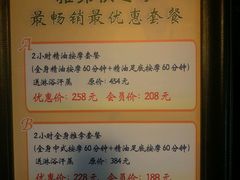 最畅销最优惠套餐
A
2小时精油按摩套餐
(全身精油按摩60分钟+精油足底按摩60分钟)
送淋浴汗蒸 原价:454元
优惠价:258元 会员价:208元
B
2小时全身推拿套餐
(全身中式按摩60分钟+精油足底按摩60分钟)
送淋浴汗蒸 原价:384元
优惠价:228元 会员价:188元